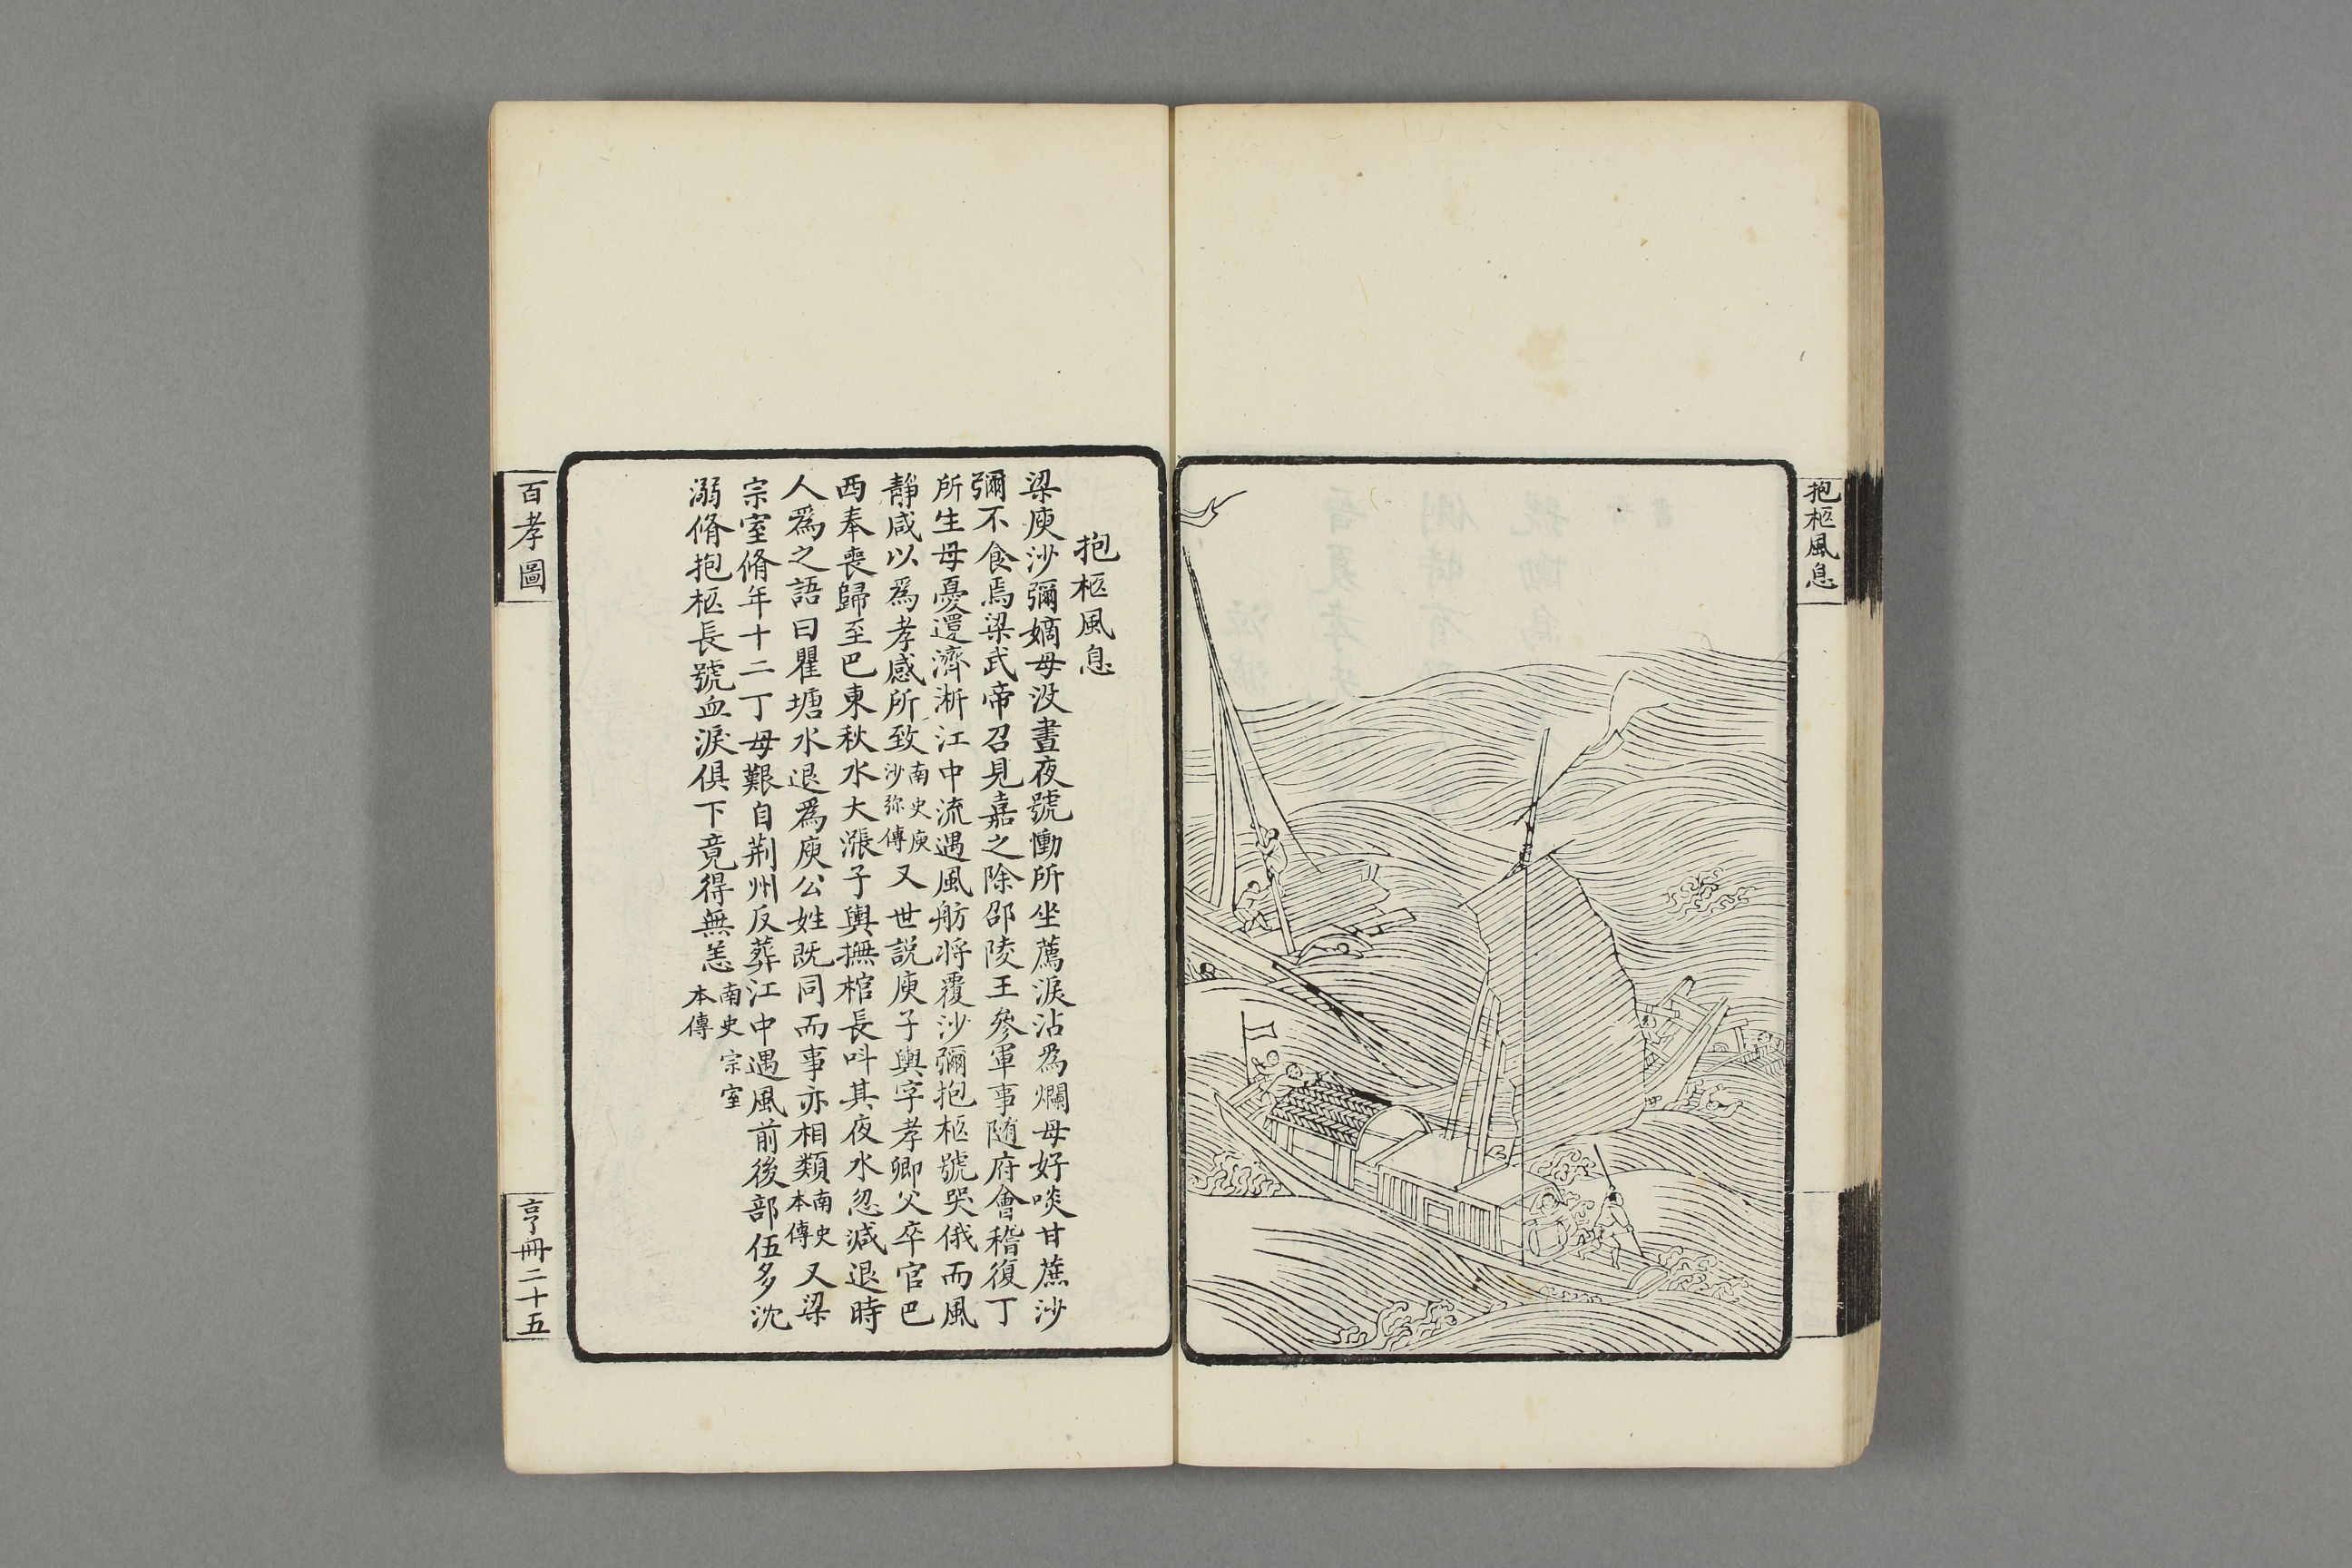 抱柩風息
抱柩風息
梁庾沙彌嫡母沒晝夜號慟所坐薦淚沾為爛母好啖甘蔗沙
彌不食焉梁武帝召見嘉之除邵陵王參軍事随府會稽復丁
所生母憂還濟淅江中流遇風舫將覆沙彌抱柩號哭俄而風
靜咸以爲孝感所致南史庾沙弥傳又世説庾子輿字孝卿父卒官巴
西奉喪歸至巴東秋水大漲子輿撫棺長呌其夜水忽減退時
人爲之語曰瞿塘水退爲庾公姓既同而事亦相類南史本傳又梁
宗室脩年十二丁母艱自荆州反葬江中遇風前後部伍多沈
溺脩抱柩長號血淚俱下竟得無恙南史宗室本傳
百孝圖
亨冊二十五